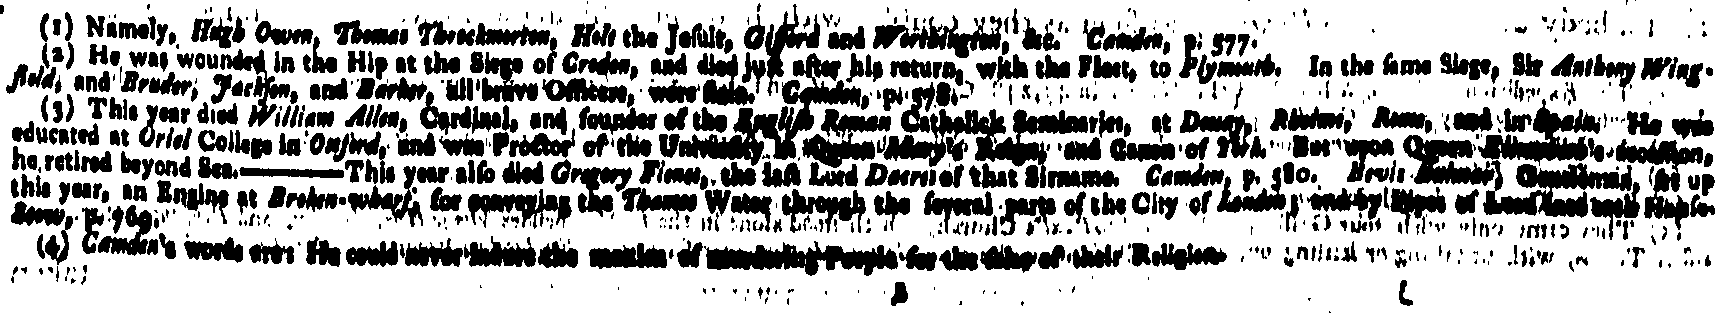 (1) Namely, Hugh Owen, Thomas Throckmorton, Holt the Jesuit, Gifford and Worthington, &c. Camden, p. 577.
(2) He was wounded in the Hip at the Siege of Crodon, and died just after his return, with the Fleet, to Plymouth. In the same Siege, Sir Anthony Wing-
field, and Bruder, Jackson, and Barker, all brave Officers, were slain. Camden, p. 578.
(3) This year died William Allen, Cardinal, and founder of the English Roman Catholick Seminaries, at Doway, Rheims, Rome, and in Spain. He was
educated at Oriel College in Oxford, and was Proctor of the University in Queen Mary's Reign, and Canon of York. But upon Queen Elizabeth's accession,
he retired beyond Sea.——This year also died Gregory Fienes, the last Lord Dacres of that Sirname. Camden, p. 580. Bevis Gentleman, set up
this year, an Engine at Broken-wharf, for conveying the Thames Water through the several parts of the City of London; and by Pipes of Lead into each House.
Stow, p. 769.
(4) Camden's words are: He could never indure the of murdering People for the sake of their Religion.